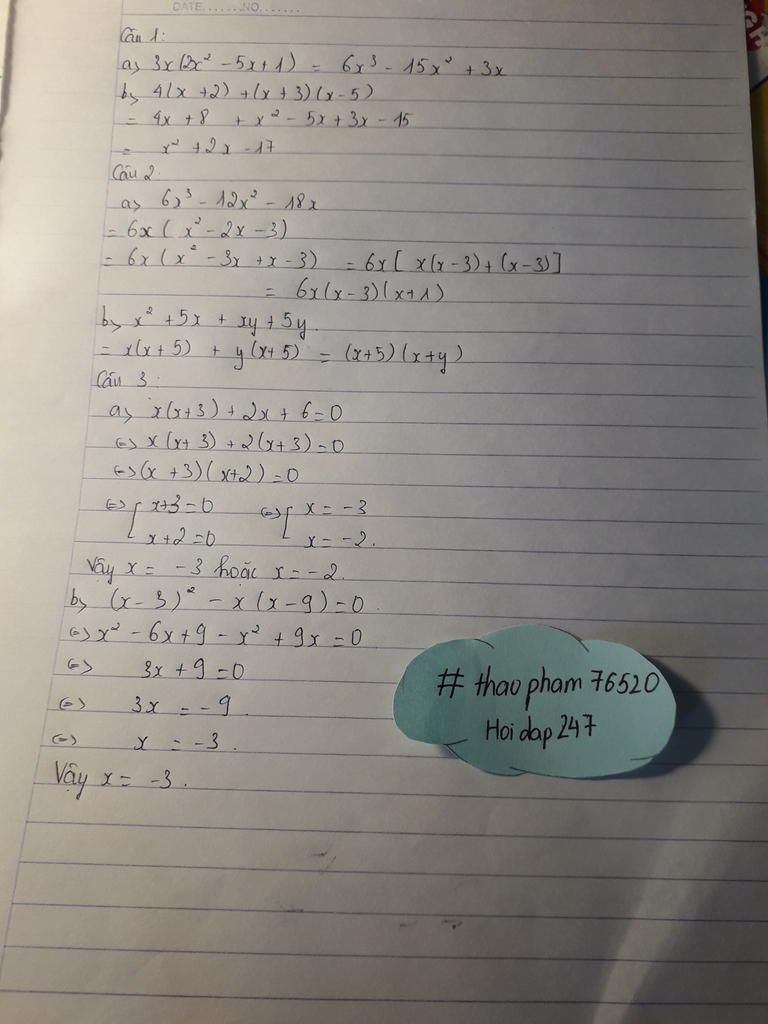 DATE.......NO.......
Câu 1:
a) 3x(2x² - 5x + 1) = 6x³ - 15x² + 3x
b) 4(x + 2) + (x + 3)(x - 5)
= 4x + 8 + x² - 5x + 3x - 15
= x² + 2x - 17
Câu 2:
a) 6x³ - 12x² - 18x
= 6x(x² - 2x - 3)
= 6x(x² - 3x + x - 3) = 6x[x(x - 3) + (x - 3)]
= 6x(x - 3)(x + 1)
b) x² + 5x + xy + 5y.
= x(x + 5) + y(x + 5) = (x + 5)(x + y)
Câu 3:
a) x(x + 3) + 2x + 6 = 0
⇔ x(x + 3) + 2(x + 3) = 0
⇔ (x + 3)(x + 2) = 0
⇔ [ x + 3 = 0 ⇔ [ x = -3
x + 2 = 0 x = -2.
Vậy x = -3 hoặc x = -2.
b) (x - 3)² - x(x - 9) = 0.
⇔ x² - 6x + 9 - x² + 9x = 0
⇔ 3x + 9 = 0
⇔ 3x = -9.
⇔ x = -3.
Vậy x = -3.
# thaopham76520
Hoidap247